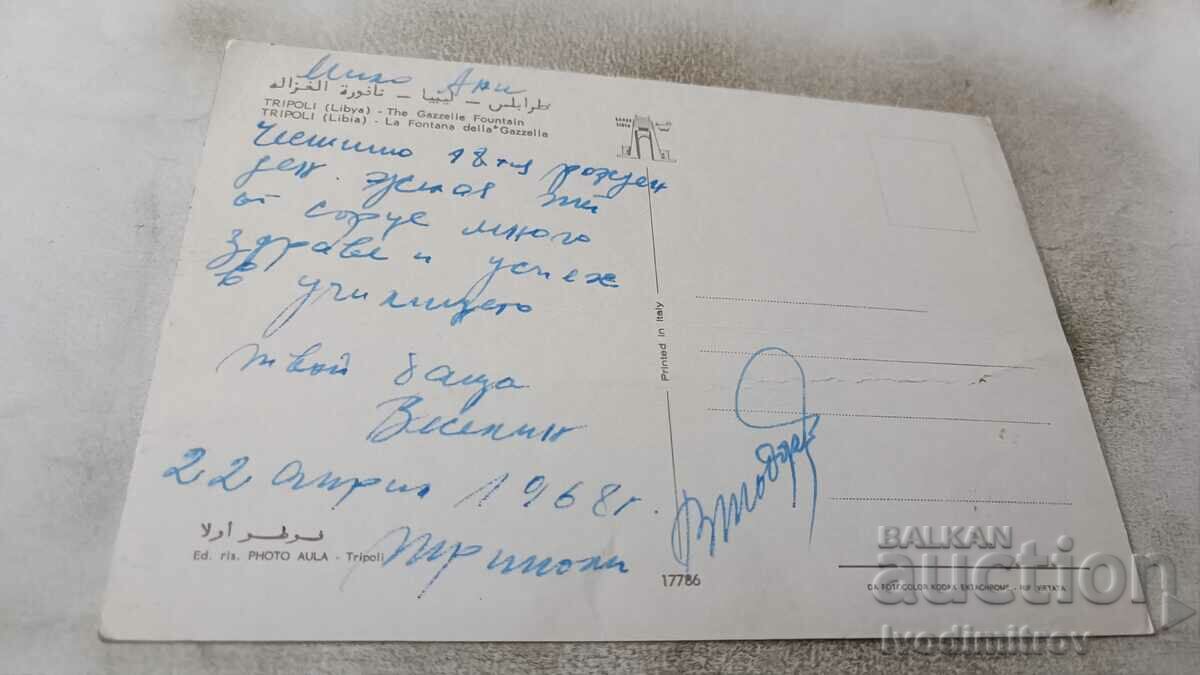 Мила Ани
طرابلس - ليبيا - نافورة الغزاله
TRIPOLI (Libya) - The Gazzelle Fountain
TRIPOLI (Libia) - La Fontana della Gazzella
Честито 18-тия рожден
ден. Желая ти
от сърце много
здраве и успех
в училището
твой баща
Веселин
22 април 1968 г.
Триполи
فوطو أولا
Ed. ris. PHOTO AULA - Tripoli
Printed in Italy
17786
DA FOTOCOLOR KODAK EKTACHROME - RIP. VIETATA
BALKAN
auction
Ivodimitrov